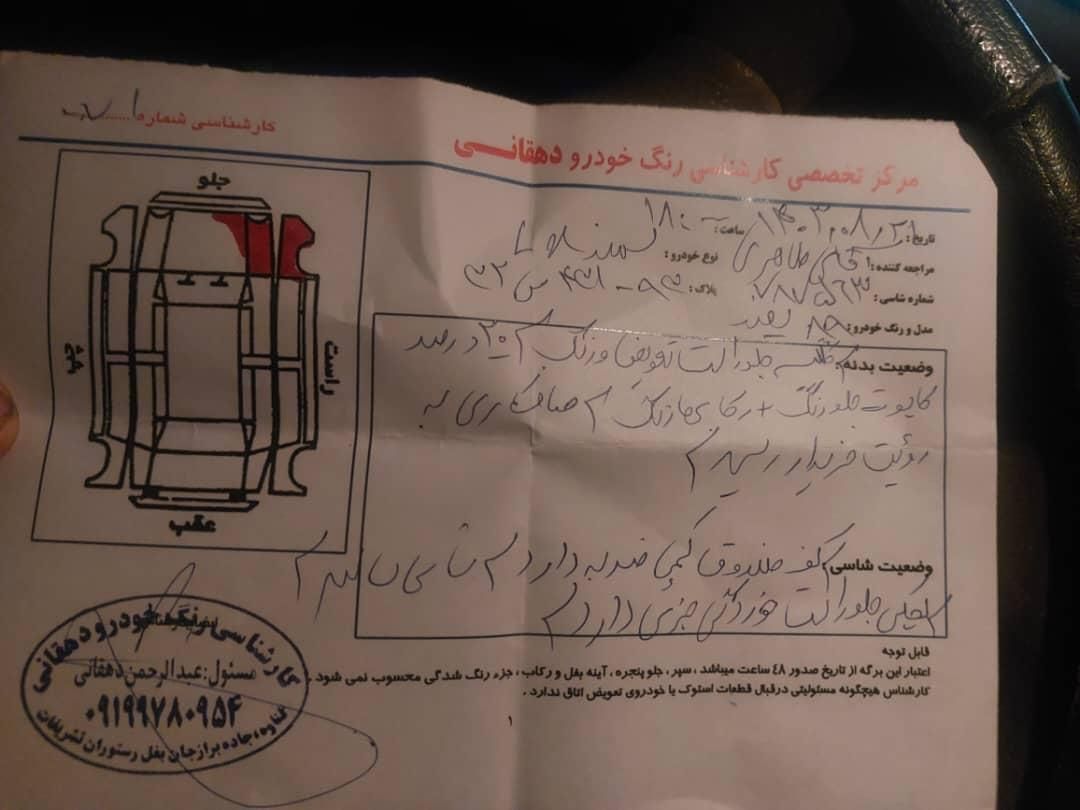 کارشناسی شماره
مرکز تخصصی کارشناسی رنگ خودرو دهقانی
تاریخ: ۱۴۰۳,۰۸,۲۱ ساعت: ۱۸:۰۰
مراجعه کننده: آقای طاهری نوع خودرو: سمند
شماره شاسی: پلاک:
مدل و رنگ خودرو: سفید
جلو
چپ
راست
عقب
وضعیت بدنه: گلگیر جلو راست تعویض و رنگ ۲۰ درصد
کاپوت جلو رنگ + رکابها رنگ صافکاری به
رؤیت خریدار رسید
وضعیت شاسی: کف صندوق کمی ضربه دارد شاسی سالم
سینی جلو راست خوردگی جزئی دارد
قابل توجه
اعتبار این برگه از تاریخ صدور ٤٨ ساعت میباشد ، سپر ، جلو پنجره ، آینه بغل و رکاب ، جزء رنگ شدگی محسوب نمی شود .
کارشناس هیچگونه مسئولیتی درقبال قطعات استوک یا خودروی تعویض اتاق ندارد .
۱
کارشناسی رنگ خودرو دهقانی
مسئول: عبدالرحمن دهقانی
۰۹۱۹۹۷۸۰۹۵۴
گناوه، جاده برازجان بغل رستوران تشریفات